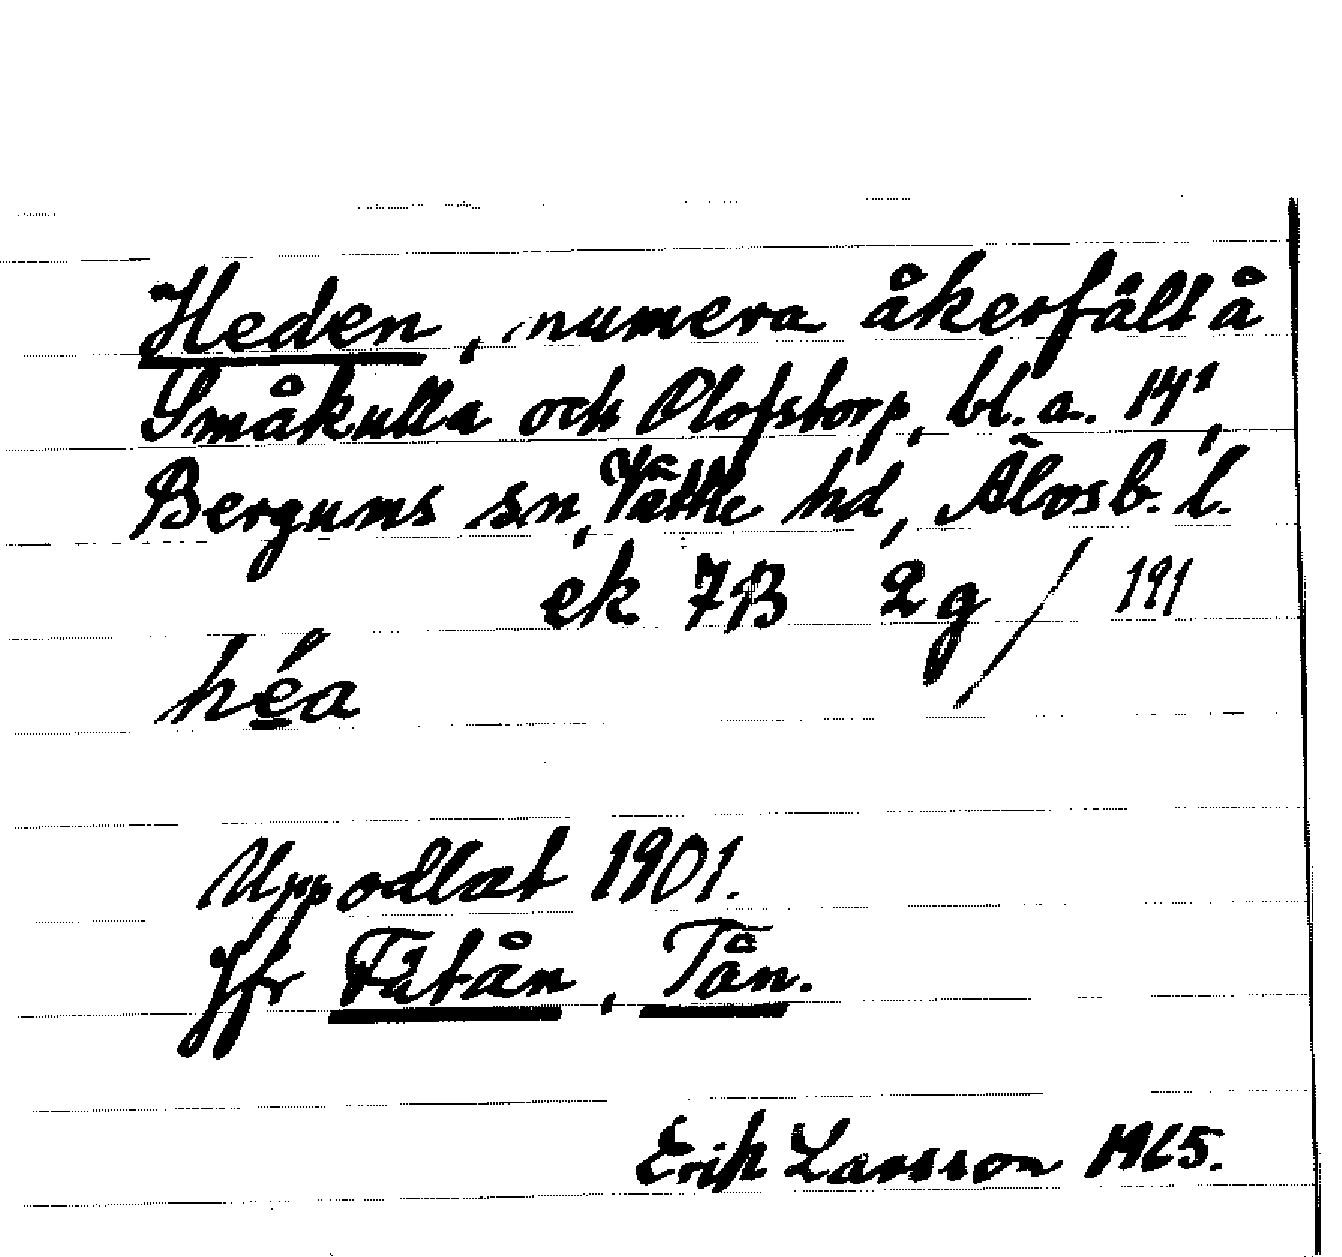 Heden, numera åkerfält å
Småkulla och Olofstorp, bl. a. 14¹,
Bergums sn, Vätte hd, Älvsb. l.
ek 7B 2g / 191
héa
Uppodlat 1901.
Jfr Fåtån, Tån.
Erik Larsson 1965.